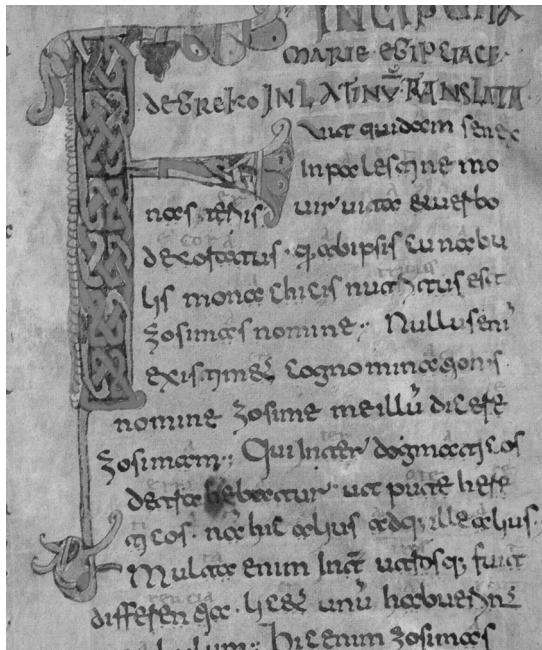 INCIPIT UITA
MARIE EGIPCIACE.
de GREKO IN LATINŪ TRANSLATA
Fuit quidam senex
In palestine mo
nas terııs uir uitae et uerbo
decoratus · q̄ ab ipsis cunabu
lis monachicis nutritus est
zosimas nomine · Nullus eni
existimet cognominationis
nomine zosime me illū dicere
zosimam ; Qui Inter dogmaticos
detra hebatur ut pute here
ticos · nā hic alius adq; ille alius .
Multa enim Int utrosq; fuit
differentia · licet unū habuerint
Hic enim zosimas